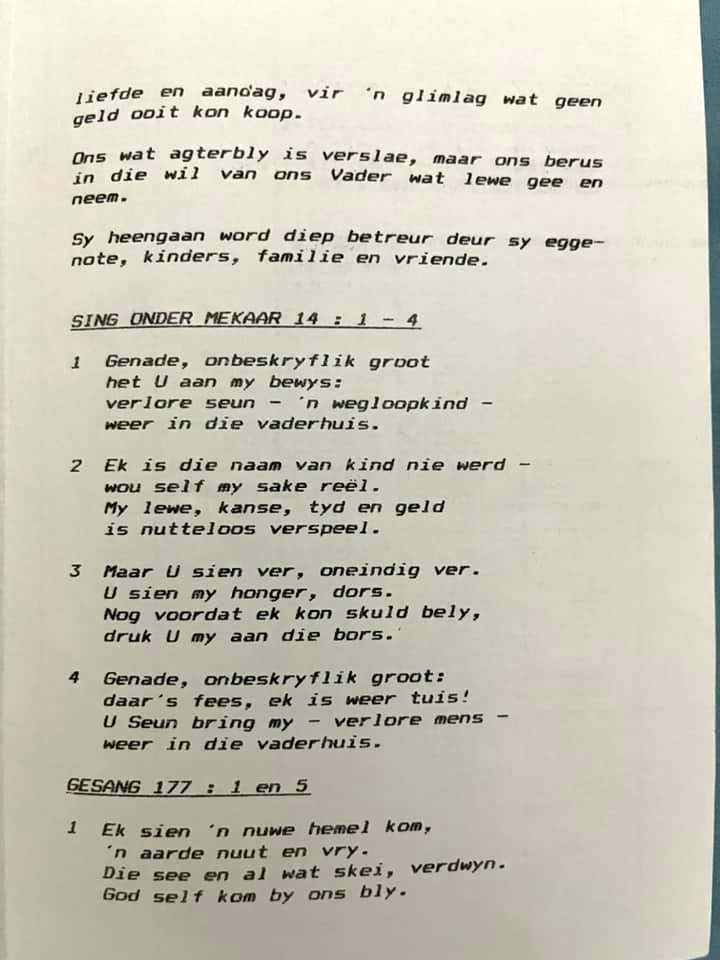 liefde en aandag, vir 'n glimlag wat geen
geld ooit kon koop.
Ons wat agterbly is verslae, maar ons berus
in die wil van ons Vader wat lewe gee en
neem.
Sy heengaan word diep betreur deur sy egge-
note, kinders, familie en vriende.
SING ONDER MEKAAR 14 : 1 - 4
1 Genade, onbeskryflik groot
het U aan my bewys:
verlore seun - 'n wegloopkind -
weer in die vaderhuis.
2 Ek is die naam van kind nie werd -
wou self my sake reël.
My lewe, kanse, tyd en geld
is nutteloos verspeel.
3 Maar U sien ver, oneindig ver.
U sien my honger, dors.
Nog voordat ek kon skuld bely,
druk U my aan die bors.
4 Genade, onbeskryflik groot:
daar's fees, ek is weer tuis!
U Seun bring my - verlore mens -
weer in die vaderhuis.
GESANG 177 : 1 en 5
1 Ek sien 'n nuwe hemel kom,
'n aarde nuut en vry.
Die see en al wat skei, verdwyn.
God self kom by ons bly.